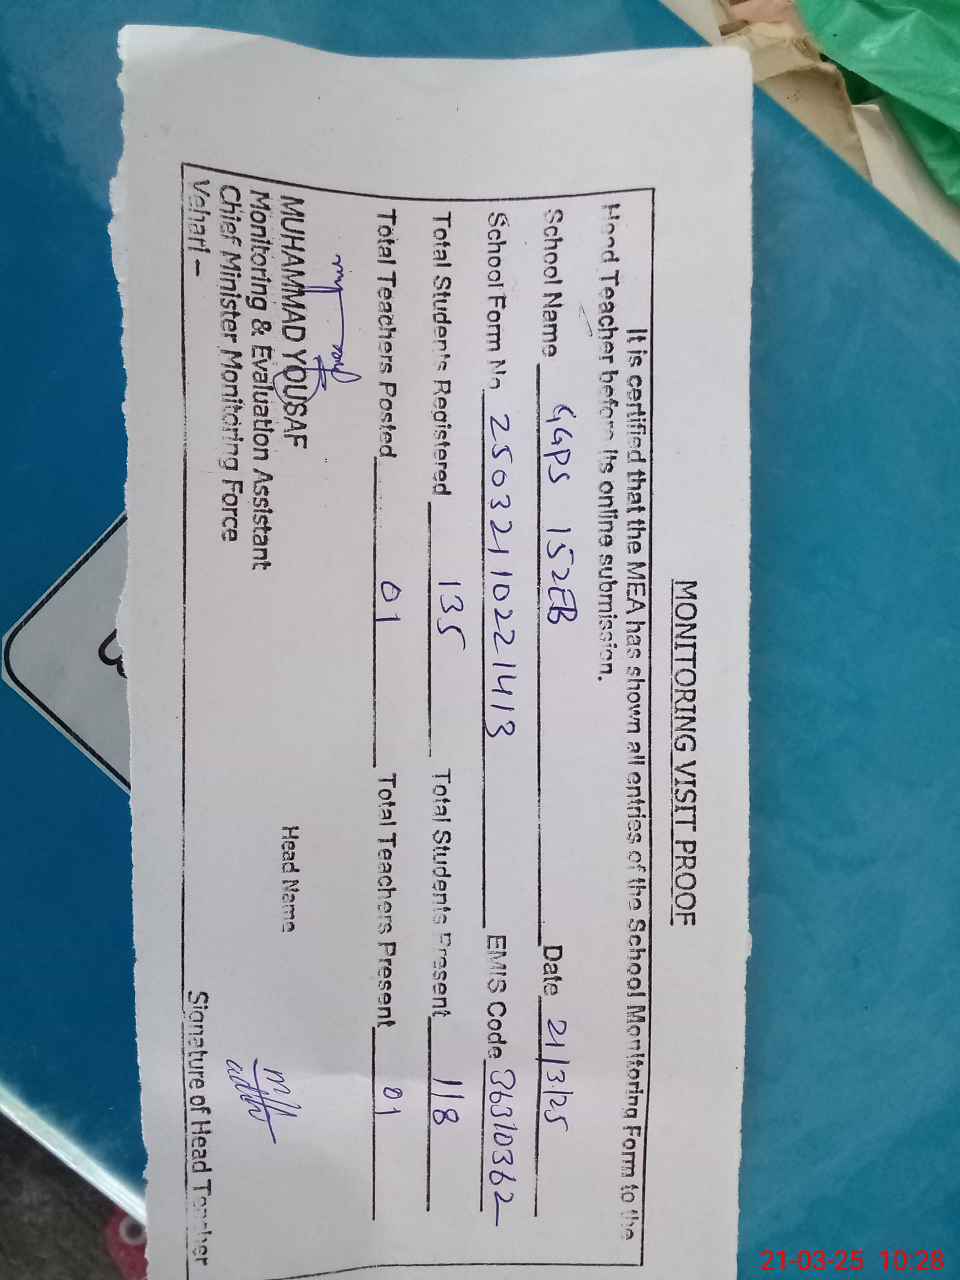 MONITORING VISIT PROOF
It is certified that the MEA has shown all entries of the School Monitoring Form to the
Head Teacher before its online submission.
School Name GGPS 152EB Date 21/3/25
School Form No 25032110221413 EMIS Code 36310362
Total Students Registered 135 Total Students Present 118
Total Teachers Posted 01 Total Teachers Present 01
MUHAMMAD YOUSAF Head Name
Monitoring & Evaluation Assistant
Chief Minister Monitoring Force
Vehari - Signature of Head Teacher
21-03-25 10:28